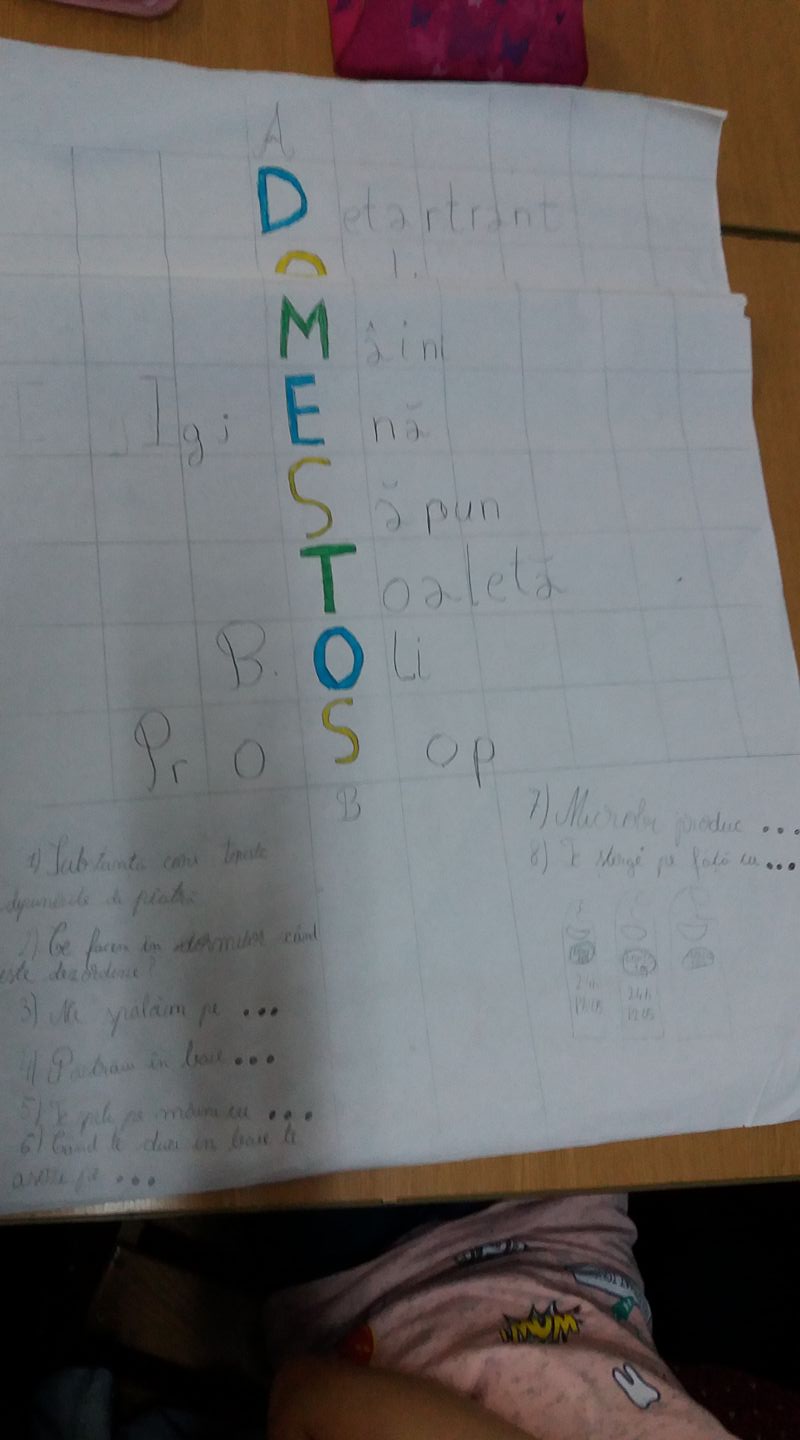 A
Detartrant
Mâini
IgiEnă
Săpun
Toaletă
BOli
PrOSop
B
1) Substanta care
de piatră
2) Ce facem in dormitor când
este dezordine?
3) Ne spălăm pe ...
4) Păstram în baie ...
5) Te speli pe mâini cu ...
6) Cand te duci in baie te
pe ...
7) Microbii produc ...
8) Te stergi pe față cu ...
24h
24h
MOM